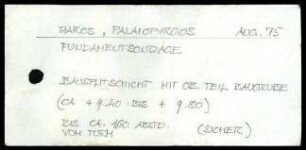 PAROS, PALAIOPYRGOS AUG. 75
FUNDAMENTSONDAGE
BAUSPLITSCHICHT MIT OB. TEIL BAUGRUBE
(CA. +9.40 BIS +9.80)
BIS CA. 160 ABSTD.
VOM TURM (SICHER)